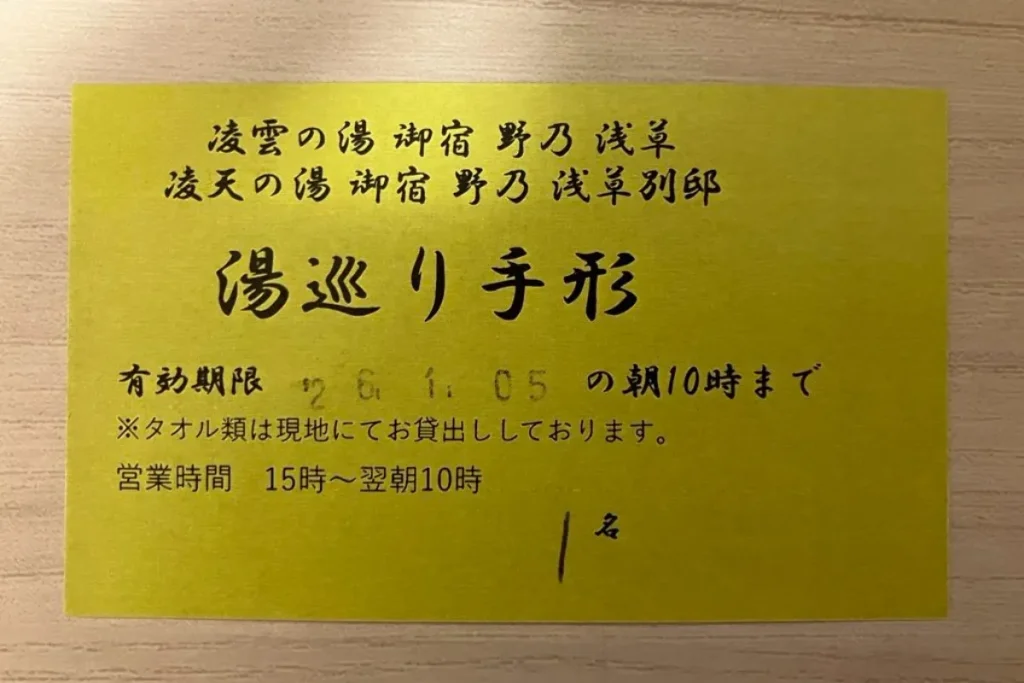 凌雲の湯 御宿 野乃 浅草
凌天の湯 御宿 野乃 浅草別邸
湯巡り手形
有効期限 '26.1.05 の朝10時まで
※タオル類は現地にてお貸出ししております。
営業時間 15時～翌朝10時
1名